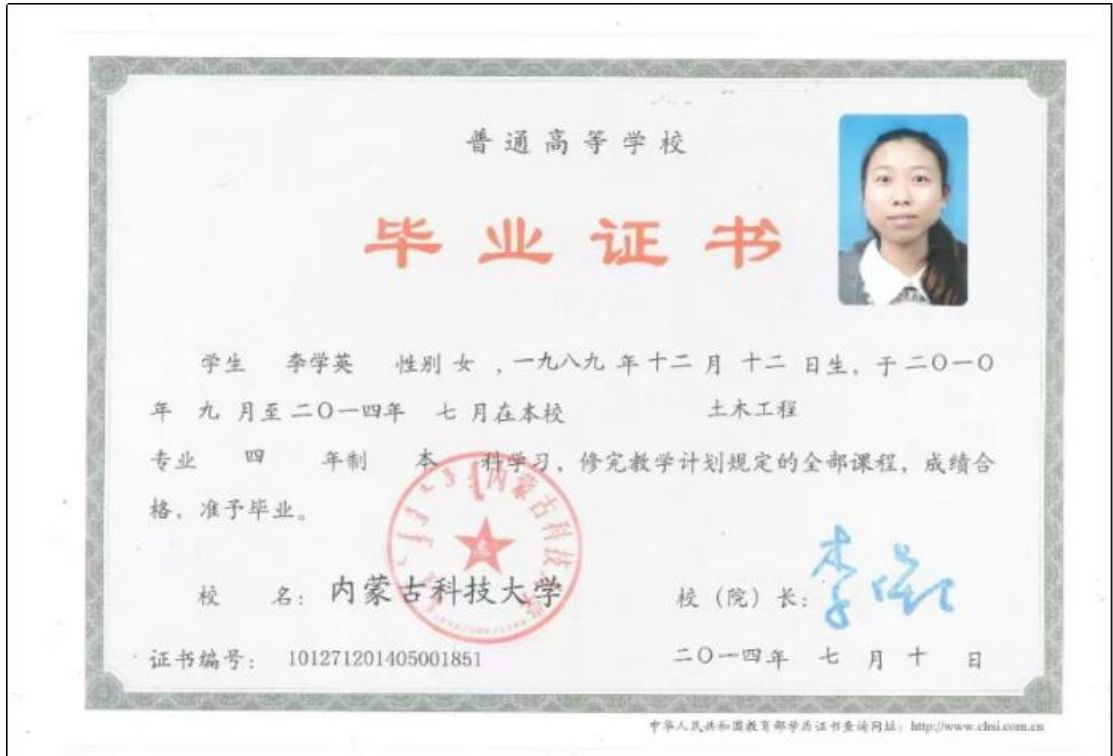 普通高等学校
毕业证书
学生 李学英 性别 女 ，一九八九 年 十二 月 十二 日生，于 二〇一〇
年 九 月至 二〇一四年 七 月在本校 土木工程
专业 四 年制 本 科学习，修完教学计划规定的全部课程，成绩合
格，准予毕业。
内蒙古科技大学
校 名：内蒙古科技大学 校（院）长：
证书编号： 101271201405001851 二〇一四年 七 月 十 日
中华人民共和国教育部学历证书查询网址：http://www.chsi.com.cn